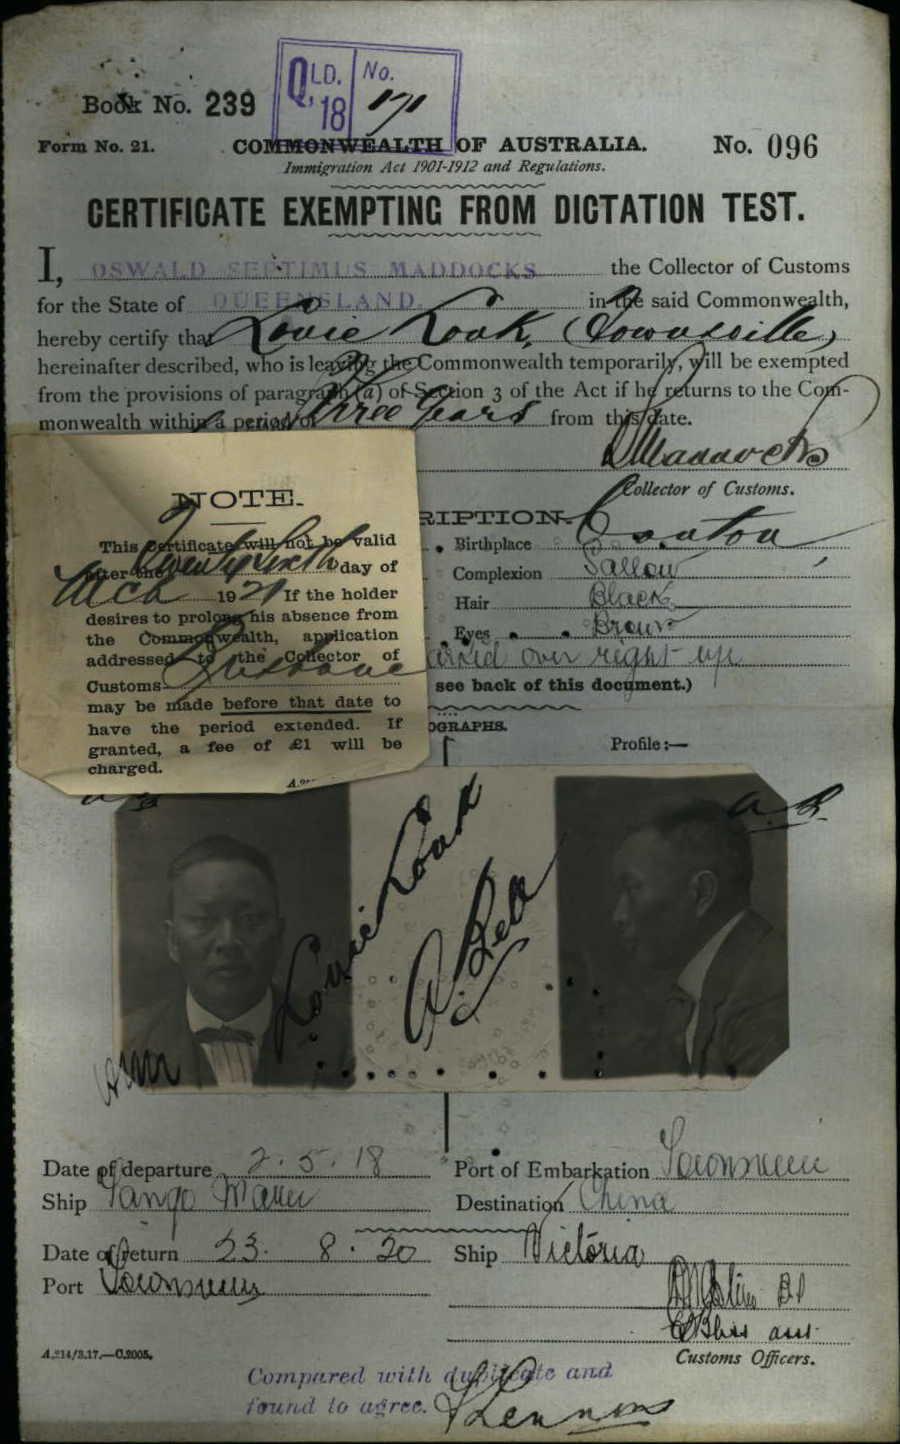 QLD. 18 No. 171
Book No. 239
Form No. 21. COMMONWEALTH OF AUSTRALIA. No. 096
Immigration Act 1901-1912 and Regulations.
CERTIFICATE EXEMPTING FROM DICTATION TEST.
I, OSWALD SEPTIMUS MADDOCKS the Collector of Customs
for the State of QUEENSLAND. in the said Commonwealth,
hereby certify that Louie Look, (Townsville)
hereinafter described, who is leaving the Commonwealth temporarily, will be exempted
from the provisions of paragraph (a) of Section 3 of the Act if he returns to the Com-
monwealth within a period of Three Years from this date.
Maddocks
Collector of Customs.
NOTE.
This Certificate will not be valid
after the Twenty sixth day of
Mch 1921 If the holder
desires to prolong his absence from
the Commonwealth, application
addressed to the Collector of
Customs Brisbane
may be made before that date to
have the period extended. If
granted, a fee of £1 will be
charged.
RIPTION.
Birthplace Canton
Complexion Sallow
Hair Black
Eyes Brown
over right
see back of this document.)
OGRAPHS.
Profile:—
Louie Look
Date of departure 2.5.18 Port of Embarkation Townsville
Ship Tango Maru Destination China
Date of return 23. 8. 20 Ship Victoria
Port Townsville
A.214/3.17.—C.2005.
Customs Officers.
Compared with duplicate and
found to agree.